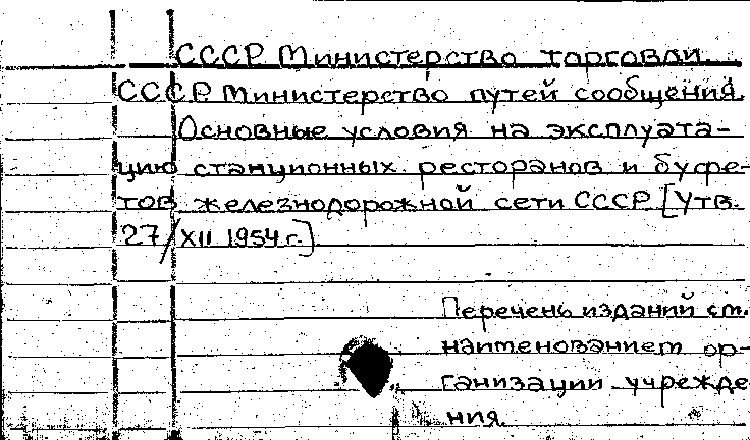 СССР Министерство торговли.
СССР. Министерство путей сообщения.
Основные условия на эксплуата-
цию станционных ресторанов и буфе-
тов железнодорожной сети СССР [Утв.
27/XII 1954 г.]
Перечень изданий см.
наименованием ор-
ганизации учрежде
ния.